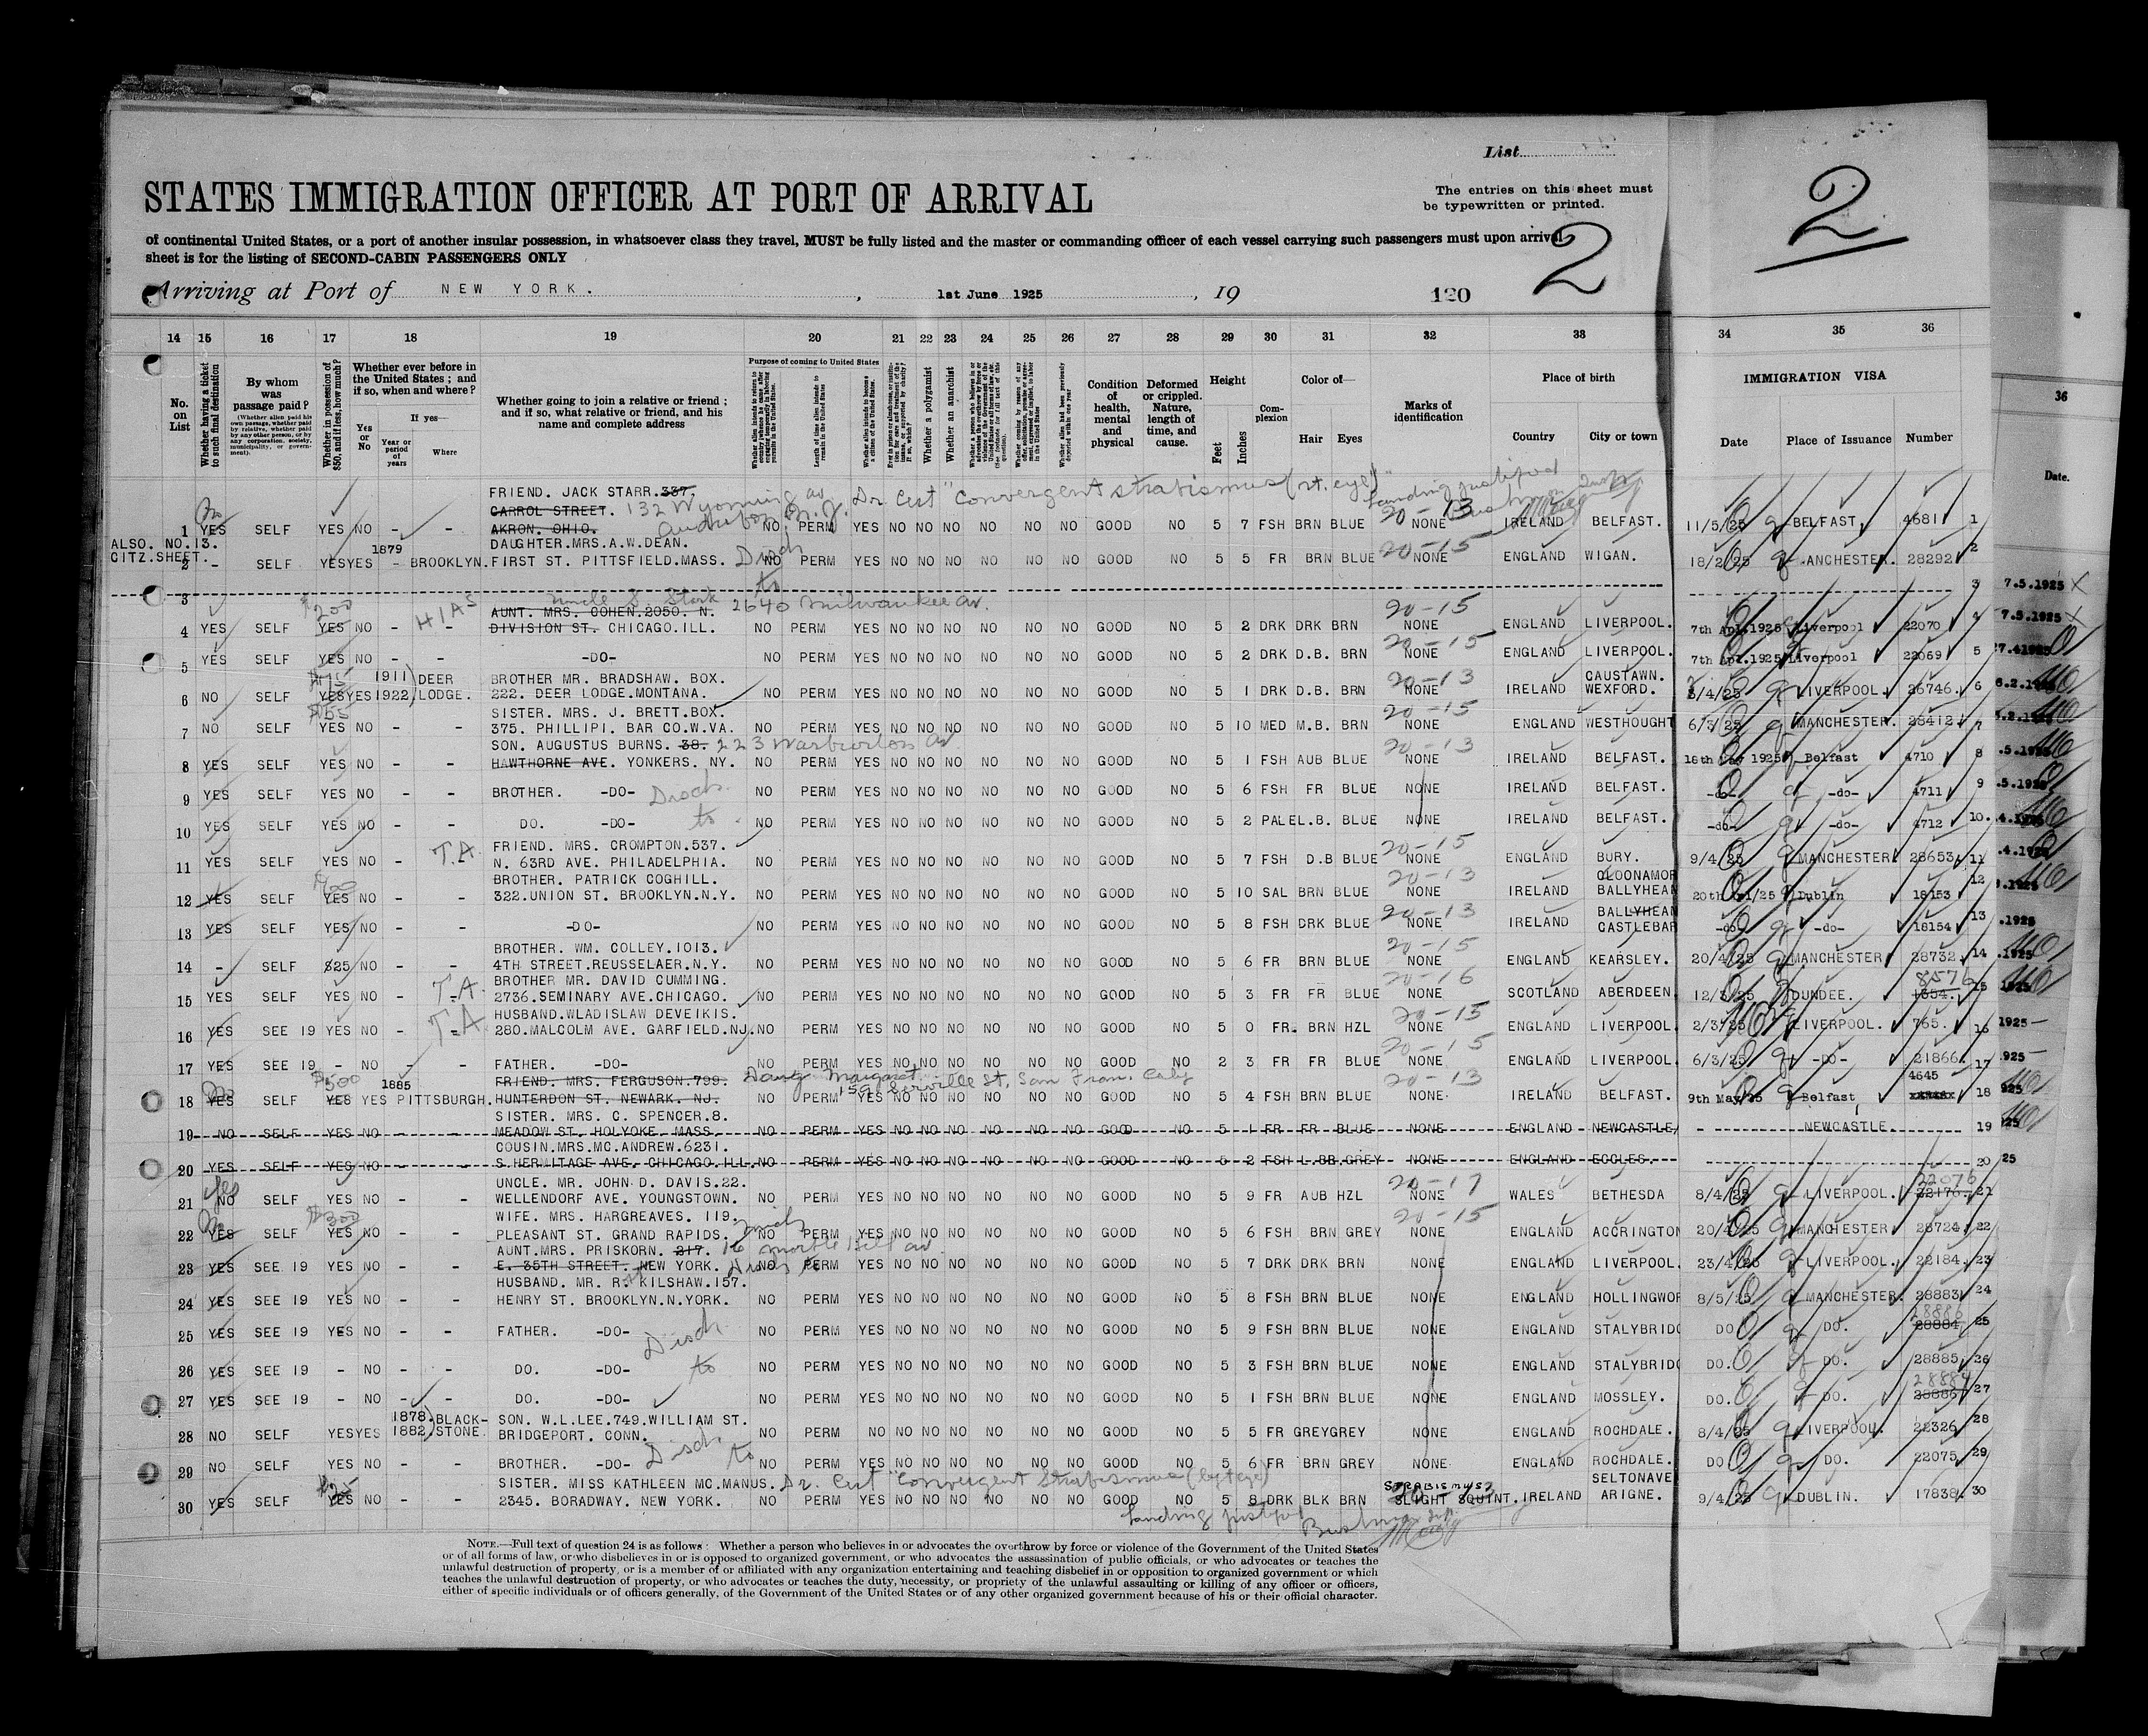 List
STATES IMMIGRATION OFFICER AT PORT OF ARRIVAL
The entries on this sheet must
be typewritten or printed.
2
2
of continental United States, or a port of another insular possession, in whatsoever class they travel, MUST be fully listed and the master or commanding officer of each vessel carrying such passengers must upon arrival
sheet is for the listing of SECOND-CABIN PASSENGERS ONLY
Arriving at Port of NEW YORK. , 1st June 1925 , 19 120
14 15 16 17 18 19 20 21 22 23 24 25 26 27 28 29 30 31 32 33 34 35 36
No. on List
Whether having a ticket to such final destination
By whom was passage paid?
(Whether alien paid his own passage, whether paid by relative, whether paid by any other person, or by any corporation, society, municipality, or government).
Whether in possession of $50, and if less, how much?
Whether ever before in the United States; and if so, when and where?
Yes or No
If yes—
Year or period of years
Where
Whether going to join a relative or friend; and if so, what relative or friend, and his name and complete address
Purpose of coming to United States
Whether a polygamist
Whether an anarchist
Condition of health, mental and physical
Deformed or crippled. Nature, length of time, and cause.
Height
Feet Inches
Complexion
Color of—
Hair Eyes
Marks of identification
Place of birth
Country City or town
IMMIGRATION VISA
Date Place of Issuance Number
36
Date.
FRIEND. JACK STARR. 337. Dr. Cert "Convergent strabismus (rt. eye)" Landing justified
CARROL STREET. 132 Wyoming av
1 YES SELF YES NO - - AKRON. OHIO. Audubon N.J. NO PERM YES NO NO NO NO NO NO GOOD NO 5 7 FSH BRN BLUE 20-13 NONE IRELAND BELFAST. 11/5/25 BELFAST, 4681 1
ALSO. NO.13. CITZ.SHEET.
DAUGHTER.MRS.A.W.DEAN.
2 - SELF YES YES 1879 - BROOKLYN. FIRST ST. PITTSFIELD.MASS. NO PERM YES NO NO NO NO NO NO GOOD NO 5 5 FR BRN BLUE 20-15 NONE ENGLAND WIGAN. 18/2/25 MANCHESTER. 28292 2
3 3 7.5.1925
Uncle S. Stark 2640 Milwaukee av.
AUNT. MRS. COHEN.2050. N.
4 YES SELF $200 YES NO - HIAS - DIVISION ST. CHICAGO.ILL. NO PERM YES NO NO NO NO NO NO GOOD NO 5 2 DRK DRK BRN 20-15 NONE ENGLAND LIVERPOOL. 7th Apl.1925 Liverpool 22070 4 7.5.1925
5 YES SELF YES NO - - -DO- NO PERM YES NO NO NO NO NO NO GOOD NO 5 2 DRK D.B. BRN 20-15 NONE ENGLAND LIVERPOOL. 7th Apr.1925 Liverpool 22069 5
BROTHER MR. BRADSHAW. BOX. CAUSTAWN.
6 NO SELF YES YES 1911 1922 DEER LODGE. 222. DEER LODGE.MONTANA. NO PERM YES NO NO NO NO NO NO GOOD NO 5 1 DRK D.B. BRN 20-13 NONE IRELAND WEXFORD. /4/25 LIVERPOOL. 26746. 6
SISTER. MRS. J. BRETT.BOX.
7 NO SELF YES NO - - 375. PHILLIPI. BAR CO.W.VA. NO PERM YES NO NO NO NO NO NO GOOD NO 5 10 MED M.B. BRN 20-15 NONE ENGLAND WESTHOUGHT 6/3/25 MANCHESTER. 28412 7
SON. AUGUSTUS BURNS. 38. 223 Warburton av.
8 YES SELF YES NO - - HAWTHORNE AVE. YONKERS. NY. NO PERM YES NO NO NO NO NO NO GOOD NO 5 1 FSH AUB BLUE 20-13 NONE IRELAND BELFAST. 1925 Belfast 4710 8
9 YES SELF YES NO - - BROTHER. -DO- NO PERM YES NO NO NO NO NO NO GOOD NO 5 6 FSH FR BLUE NONE IRELAND BELFAST. -do- -do- 4711 9
10 YES SELF YES NO - - DO. -DO- NO PERM YES NO NO NO NO NO NO GOOD NO 5 2 PALE L.B. BLUE NONE IRELAND BELFAST. -do- -do- 4712 10.
FRIEND. MRS. CROMPTON.537.
11 YES SELF YES NO - T.A. N. 63RD AVE. PHILADELPHIA. NO PERM YES NO NO NO NO NO NO GOOD NO 5 7 FSH D.B BLUE 20-15 NONE ENGLAND BURY. 9/4/25 MANCHESTER 28653 11
BROTHER. PATRICK COGHILL. CLOONAMOR
12 YES SELF YES NO - - 322.UNION ST. BROOKLYN.N.Y. NO PERM YES NO NO NO NO NO NO GOOD NO 5 10 SAL BRN BLUE 20-13 NONE IRELAND BALLYHEAN Dublin 18153 12
BALLYHEAN
13 YES SELF YES NO - - -DO- NO PERM YES NO NO NO NO NO NO GOOD NO 5 8 FSH DRK BLUE 20-13 NONE IRELAND CASTLEBAR -do- -do- 18154 13
BROTHER. WM. COLLEY.1013.
14 - SELF $25 NO - - 4TH STREET.REUSSELAER.N.Y. NO PERM YES NO NO NO NO NO NO GOOD NO 5 6 FR BRN BLUE 20-15 NONE ENGLAND KEARSLEY. 20/4/25 MANCHESTER 28732 14
BROTHER MR. DAVID CUMMING. 8576
15 YES SELF YES NO - T.A. 2736.SEMINARY AVE.CHICAGO. NO PERM YES NO NO NO NO NO NO GOOD NO 5 3 FR FR BLUE 20-16 NONE SCOTLAND ABERDEEN. 12/3/25 DUNDEE. 1354. 15
HUSBAND.WLADISLAW DEVEIKIS.
16 YES SEE 19 YES NO - T.A. 280.MALCOLM AVE. GARFIELD.NJ. NO PERM YES NO NO NO NO NO NO GOOD NO 5 0 FR. BRN HZL 20-15 NONE ENGLAND LIVERPOOL. 2/3/25 LIVERPOOL. 765. 16
17 YES SEE 19 - NO - - FATHER. -DO- NO PERM YES NO NO NO NO NO NO GOOD NO 2 3 FR FR BLUE 20-15 NONE ENGLAND LIVERPOOL. 6/3/25 -DO- 21866 17
FRIEND. MRS. FERGUSON.799. Daug. Margaret St, San Fran. Caly 4645
18 YES SELF $500 YES YES 1885 PITTSBURGH. HUNTERDON ST. NEWARK. NJ. NO PERM YES NO NO NO NO NO NO GOOD NO 5 4 FSH BRN BLUE 20-13 NONE. IRELAND BELFAST. 9th May/25 Belfast 18
SISTER. MRS. C. SPENCER.8.
19 NO SELF YES NO - - MEADOW ST. HOLYOKE. MASS. NO PERM YES NO NO NO NO NO NO GOOD NO 5 1 FR FR BLUE NONE ENGLAND NEWCASTLE NEWCASTLE. 19
COUSIN.MRS.MC.ANDREW.6231.
20 YES SELF YES NO - - S.HERMITAGE AVE. CHICAGO.ILL. NO PERM YES NO NO NO NO NO NO GOOD NO 5 2 FSH L.BR.GREY NONE ENGLAND ECCLES. 20
UNCLE. MR. JOHN D. DAVIS.22. 22076
21 Yes NO SELF YES NO - - WELLENDORF AVE. YOUNGSTOWN. NO PERM YES NO NO NO NO NO NO GOOD NO 5 9 FR AUB HZL 20-17 NONE WALES BETHESDA 8/4/25 LIVERPOOL. 22176 21
WIFE. MRS. HARGREAVES. 119.
22 No YES SELF $300 YES NO - - PLEASANT ST. GRAND RAPIDS. Mich NO PERM YES NO NO NO NO NO NO GOOD NO 5 6 FSH BRN GREY 20-15 NONE ENGLAND ACCRINGTON 20/4/25 MANCHESTER 28724 22
AUNT.MRS. PRISKORN. 217.
23 YES SEE 19 YES NO - - E. 35TH STREET. NEW YORK. NO PERM YES NO NO NO NO NO NO GOOD NO 5 7 DRK DRK BRN NONE ENGLAND LIVERPOOL. 23/4/25 LIVERPOOL. 22184 23
HUSBAND. MR. R. KILSHAW.157.
24 YES SEE 19 YES NO - - HENRY ST. BROOKLYN.N.YORK. NO PERM YES NO NO NO NO NO NO GOOD NO 5 8 FSH BRN BLUE NONE ENGLAND HOLLINGWOR 8/5/25 MANCHESTER. 28883 24
25 YES SEE 19 YES NO - - FATHER. -DO- Disch NO PERM YES NO NO NO NO NO NO GOOD NO 5 9 FSH BRN BLUE NONE ENGLAND STALYBRIDG DO DO. 28884 28886 25
26 YES SEE 19 - NO - - DO. -DO- to NO PERM YES NO NO NO NO NO NO GOOD NO 5 3 FSH BRN BLUE NONE ENGLAND STALYBRIDG DO. DO. 28885 26
27 YES SEE 19 - NO - - DO. -DO- NO PERM YES NO NO NO NO NO NO GOOD NO 5 1 FSH BRN BLUE NONE ENGLAND MOSSLEY. DO. DO. 28886 28884 27
SON. W.L.LEE.749.WILLIAM ST.
28 NO SELF YES YES 1878. 1882. BLACK-STONE. BRIDGEPORT. CONN. NO PERM NO NO NO NO NO NO NO GOOD NO 5 5 FR GREY GREY NONE ENGLAND ROCHDALE. 8/4/25 LIVERPOOL. 22326 28
29 NO SELF YES NO - - BROTHER. -DO- Disch to NO PERM YES NO NO NO NO NO NO GOOD NO 5 6 FR BRN GREY NONE. ENGLAND ROCHDALE. DO DO. 22075 29
SISTER. MISS KATHLEEN MC.MANUS. Dr. Cert "Convergent Strabismus (left eye)" STRABISMUS? SELTONAVE
30 YES SELF $25 YES NO - - 2345. BORADWAY. NEW YORK. NO PERM YES NO NO NO NO NO NO GOOD NO 5 8 DRK BLK BRN SLIGHT SQUINT. IRELAND ARIGNE. 9/4/25 DUBLIN. 17838 30
Landing justified
NOTE.—Full text of question 24 is as follows: Whether a person who believes in or advocates the overthrow by force or violence of the Government of the United States
or of all forms of law, or who disbelieves in or is opposed to organized government, or who advocates the assassination of public officials, or who advocates or teaches the
unlawful destruction of property, or is a member of or affiliated with any organization entertaining and teaching disbelief in or opposition to organized government or which
teaches the unlawful destruction of property, or who advocates or teaches the duty, necessity, or propriety of the unlawful assaulting or killing of any officer or officers,
either of specific individuals or of officers generally, of the Government of the United States or of any other organized government because of his or their official character.